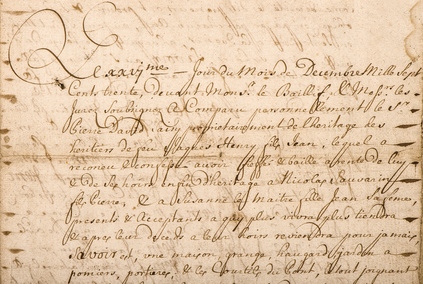 Le xxvj.me Jour du Mois de Decembre Mille Sept
Cents trente, devant Mons.r le Baillif & Mess.rs les
Jurez Soubsignez Est Comparu personnellement le S.r
Pierre David proprietairement de l'heritage les
heritiers de feu Jaques Henry fils Jean, lequel a
reconeu & Confessé avoir & baillé a rente de luy
& de Ses hoirs en fin d'heritage a Nicolas
fils Pierre, & a Suzanne le Maitre fille Jean Sa femes,
presents & Acceptants a qui plus vivra plus tiendra
& apres leur deceds a leur hoirs reviendra pour jamais,
Savoir est, une maison, grange, jardin a
pomiers, & les du bout, Etout joignant